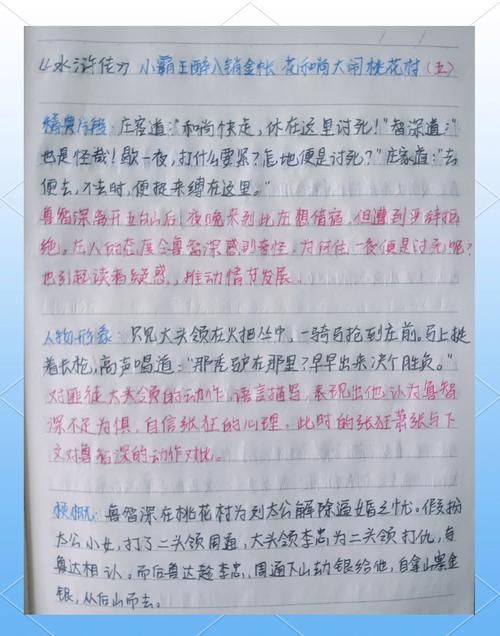 《水浒传》 小霸王醉入销金帐 花和尚大闹桃花村(五)
精典片段:庄客道:“和尚快走,休在这里讨死!”智深道:“
也是怪哉!歇一夜,打什么要紧?怎地便是讨死?”庄家道:“去
便去,不去时,便捉来缚在这里。”
鲁智深离开五台山后,夜晚来到此庄想借宿,但遭到
绝。庄人的态度令鲁智深感到奇怪,为何住一夜便是讨死呢?
也引起读者疑惑,推动情节发展。
人物形象:只见大头领在火把丛中,一骑马抢到庄前。马上挺
着长枪,高声喝道:“那秃驴在那里?早早出来决个胜负。”
对匪徒大头领的动作、语言描写,表现出他认为鲁智
深不足为惧,自信张狂的心理,此时的张狂嚣张与下
文对鲁智深的动作对比。
梗概:鲁智深在桃花村为刘太公解除逼婚之忧。假扮
太公小女,打了二头领周通,大头领李忠为二头领打仇,与
鲁达相认。而后鲁达趁李忠、周通下山劫银给他,自拿山寨金
银,从后山而去。